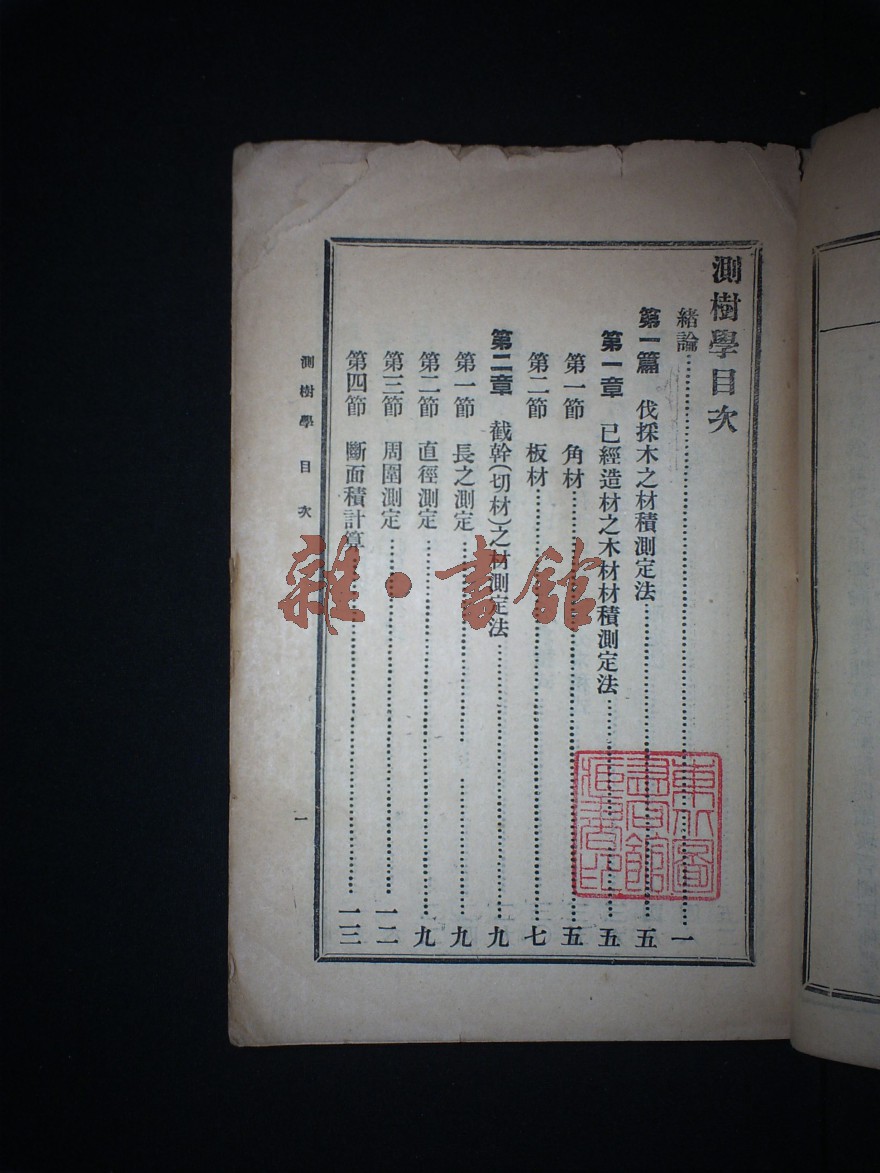 測樹學目次
緒論…………一
第一篇 伐採木之材積測定法…………五
第一章 已經造材之木材材積測定法…………五
第一節 角材…………五
第二節 板材…………七
第二章 截幹(切材)之材測定法…………九
第一節 長之測定…………九
第二節 直徑測定…………九
第三節 周圍測定…………一二
第四節 斷面積計算…………一三
測樹學目次
一
雜·書館